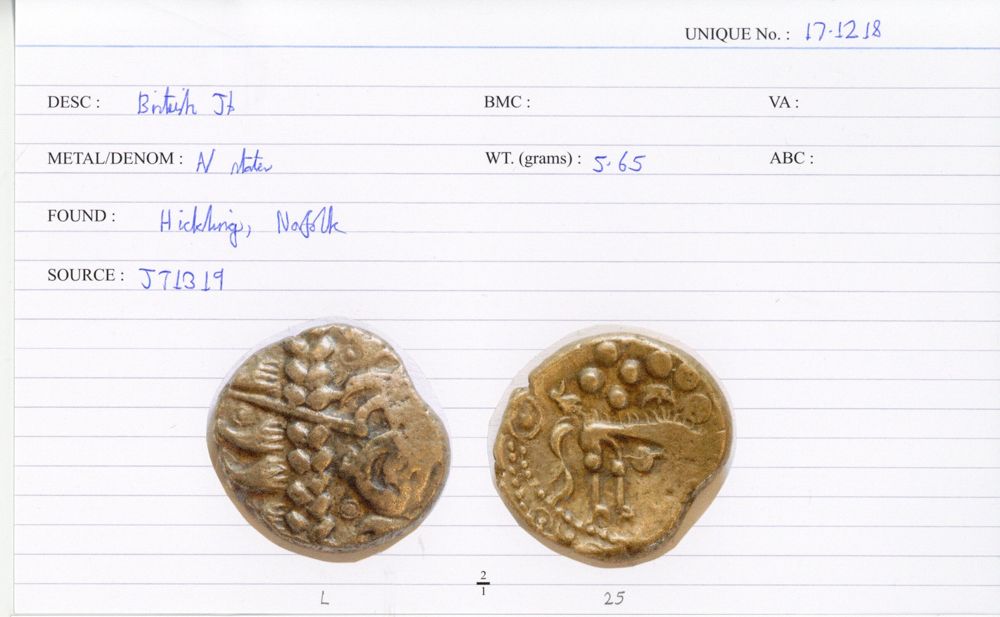 UNIQUE No. : 17.1218
DESC : British Jb
BMC :
VA :
METAL/DENOM : N stater
WT. (grams) : 5.65
ABC :
FOUND : Hickling, Norfolk
SOURCE : JT1319
2
1
L
25